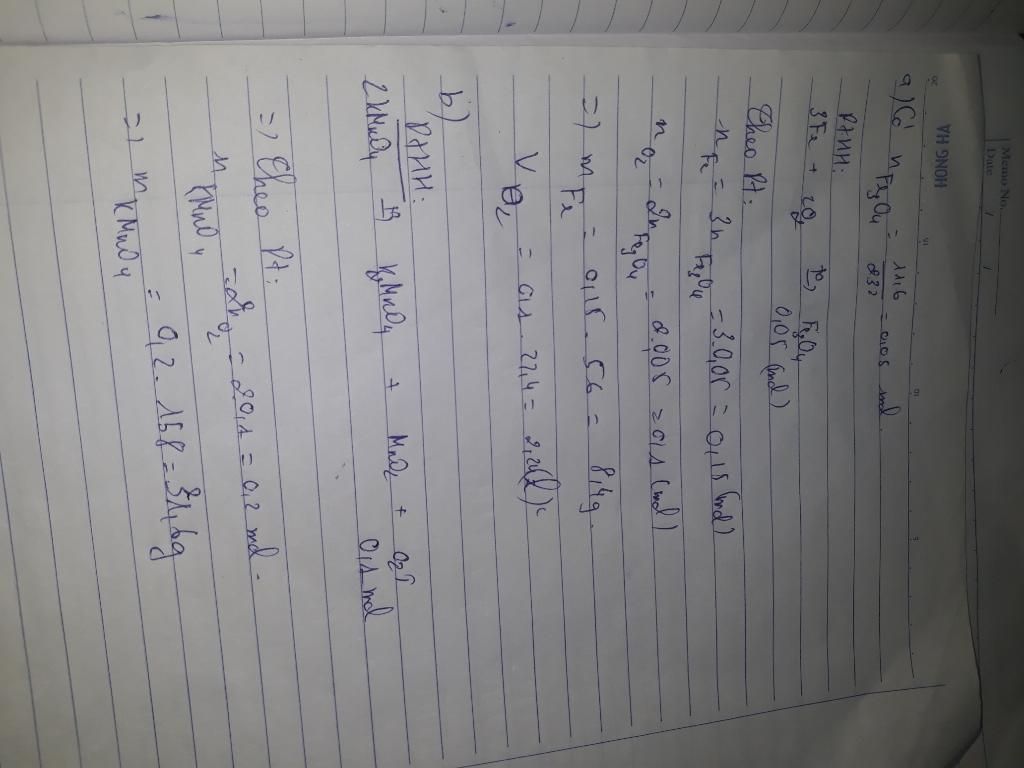 Memo No.
Date / /
HONG HA
a) Có n Fe3O4 = 11,6 / 232 = 0,05 mol
PTHH:
3Fe + 2O2 t°→ Fe3O4
0,05 (mol)
Theo Pt:
n Fe = 3n Fe3O4 = 3.0,05 = 0,15 (mol)
n O2 = 2n Fe3O4 = 2.0,05 = 0,1 (mol)
=> m Fe = 0,15 . 56 = 8,4g.
V O2 = 0,1 . 22,4 = 2,24(l)
b)
PTHH:
2KMnO4 t°→ K2MnO4 + MnO2 + O2↑
0,1 mol
=> Theo Pt:
n KMnO4 = 2n O2 = 2.0,1 = 0,2 mol.
=> m KMnO4 = 0,2 . 158 = 31,6g